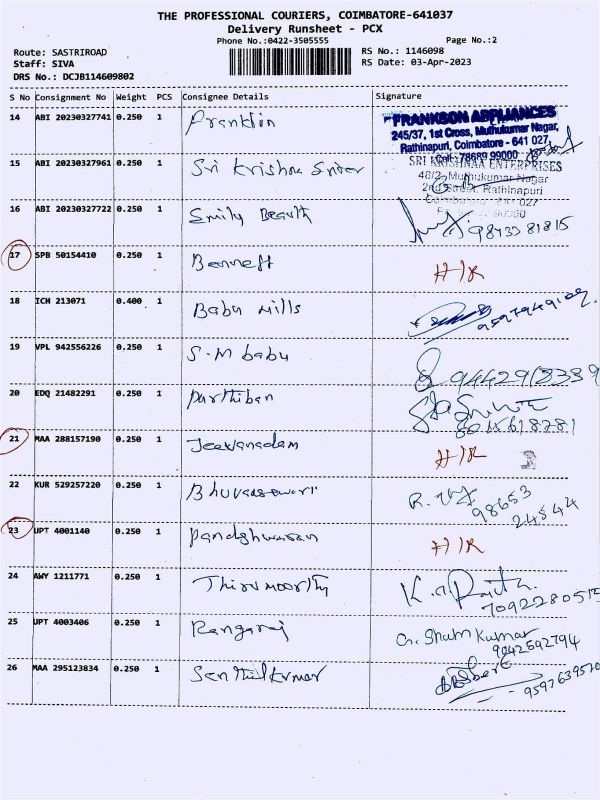 THE PROFESSIONAL COURIERS, COIMBATORE-641037
Delivery Runsheet - PCX
Phone No.:0422-3505555 Page No.:2
Route: SASTRIROAD RS No.: 1146098
Staff: SIVA RS Date: 03-Apr-2023
DRS No.: DCJB114609802
S No Consignment No Weight PCS Consignee Details Signature
14 ABI 20230327741 0.250 1 Franklin
FRANKSON APPLIANCES
245/37, 1st Cross, Muthukumar Nagar,
Rathinapuri, Coimbatore - 641 027,
Cell: 78689 99000
15 ABI 20230327961 0.250 1 Sri Krishna
SRI KRISHNAA ENTERPRISES
48/2, Muthukumar Nagar
2nd Street, Rathinapuri
Coimbatore - 641 027
16 ABI 20230327722 0.250 1 Smily 9843381815
17 SPB 50154410 0.250 1 Bennett H/R
18 ICH 213071 0.400 1 Babu Mills
19 VPL 942556226 0.250 1 S.M babu
20 EDQ 21482291 0.250 1 Parthiban
21 MAA 288157190 0.250 1 Jeevanadam H/R
22 KUR 529257220 0.250 1 Bhuvaneswari R. 98653
24544
23 UPT 4001140 0.250 1 H/R
24 AWY 1211771 0.250 1 Thirumoorthy K.
25 UPT 4003406 0.250 1 Rangaraj G. Sham Kumar
9042592794
26 MAA 295123834 0.250 1 Senthilkumar